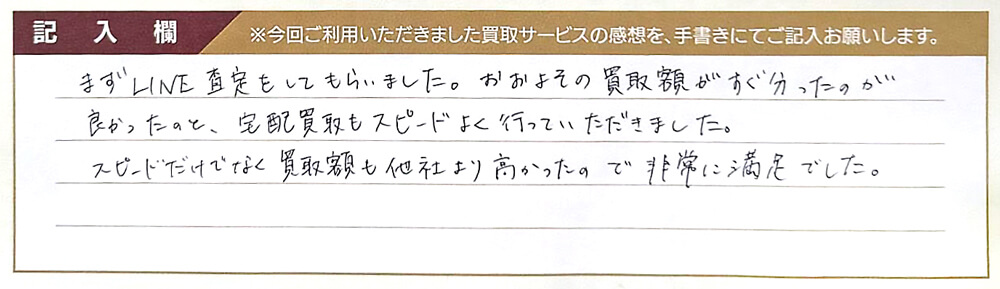 記入欄 ※今回ご利用いただきました買取サービスの感想を、手書きにてご記入お願いします。
まずLINE査定をしてもらいました。おおよその買取額がすぐ分ったのが
良かったのと、宅配買取もスピードよく行っていただきました。
スピードだけでなく買取額も他社より高かったので非常に満足でした。